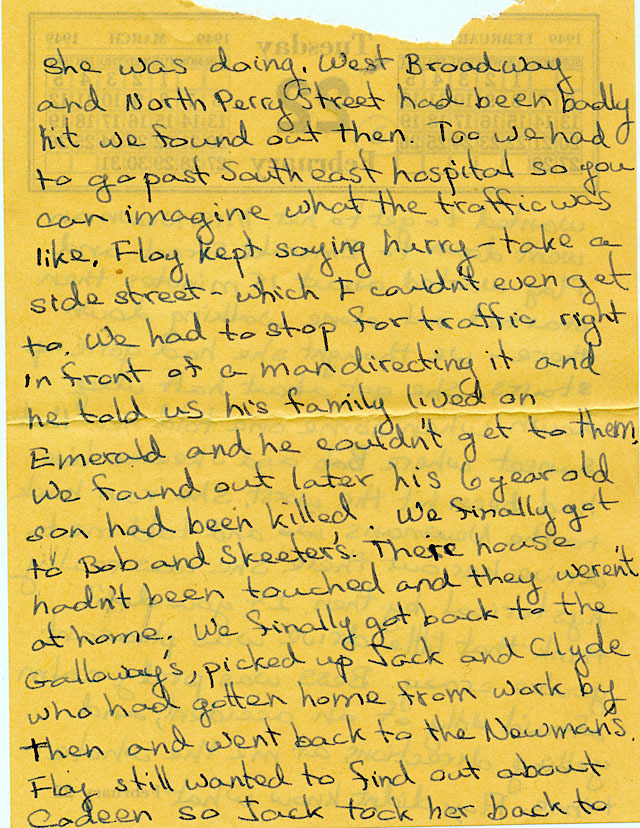 she was doing. West Broadway
and North Perry Street had been badly
hit we found out then. Too we had
to go past Southeast hospital so you
can imagine what the traffic was
like. Flay kept saying hurry - take a
side street - which I couldn't even get
to. We had to stop for traffic right
in front of a man directing it and
he told us his family lived on
Emerald and he couldn't get to them.
We found out later, his 6 year old
son had been killed. We finally got
to Bob and Skeeter's. Their house
hadn't been touched and they weren't
at home. We finally got back to the
Galloway's, picked up Jack and Clyde
who had gotten home from work by
then and went back to the Newman's.
Flay still wanted to find out about
Cadeen so Jack took her back to
1949 MARCH 1949
Tuesday
28
February
1949 FEBRUARY